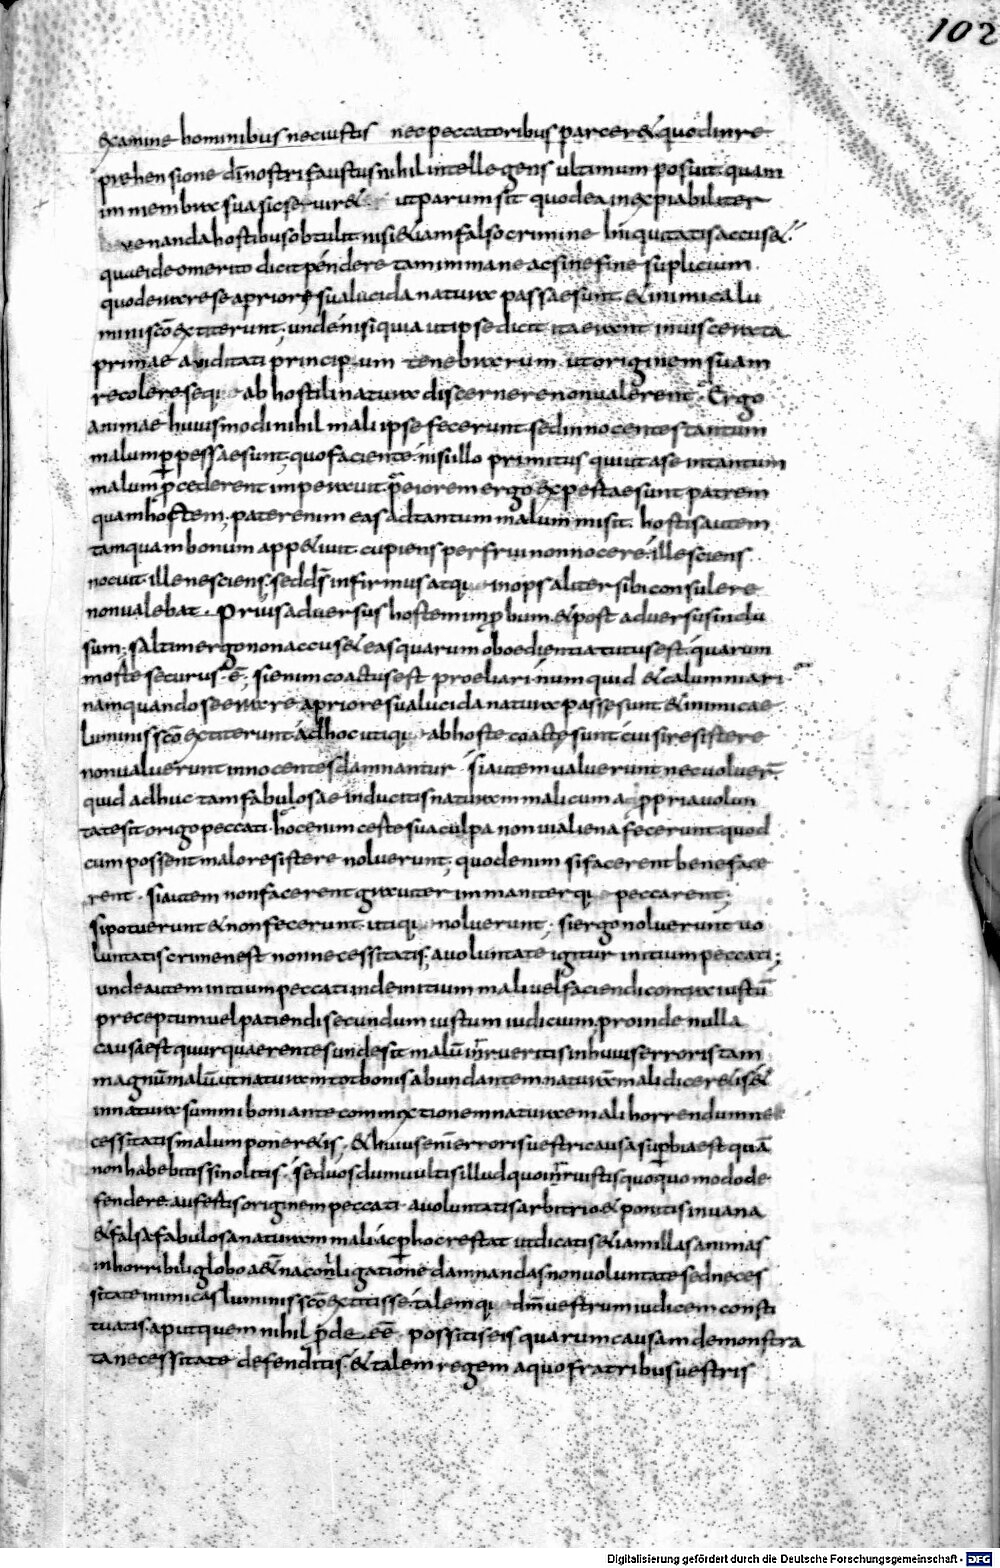 102
examine hominibus nec iustis nec peccatoribus parcer& quod in re
prehensione dni nostri faustus nihil intellegens ultimum posuit quam
in membra sua sic seuir& ut parum sit quod ea inexpiabiliter
uenanda hostibus obtulit nisi &iam falso crimine iniquitatis accus&.
quae ideo merito dicit pendere tam immane ac sine fine suplicium
quod errare se a priore sua lucida natura passae sunt. & inimicae lu
minis sco extiterunt; unde nisi quia ut ipse dicit ita erant inuisceratae
primae auiditati principum tenebrarum ut originem suam
recolere sequi ab hostili natura discernere non ualerent. Ergo
animae huiusmodi nihil mali ipse fecerunt sed innocentes tantum
malum ppessae sunt; quo faciente nisi illo primitus qui ut a se in tantum
malum pcederent imperauit peiorem ergo expertae sunt patrem
quam hostem; pater enim eas ad tantum malum misit. hostis autem
tamquam bonum app&iuit cupiens perfrui non nocere. ille sciens
nocuit ille nesciens; sed ds infirmus atqu inops aliter sibi consulere
non ualebat. Prius aduersus hostem inpbum & post aduersus inclu
sum; saltim ergo non accus& eas quarum oboedientia tutus est. quarum
morte securus e; si enim coactus est proeliari numquid & calumniari
nam quando se errare a priore sua lucida natura passe sunt & inimicae
luminis sco extiterunt ad hoc utiqu ab hoste coacte sunt cui si resistere
non ualuerunt innocentes damnantur. si autem ualuerunt nec uoluer
quid adhuc tam fabulosae inducitis naturam mali cum a ppria uolun
tate sit origo peccati. hoc enim certe sua culpa non ui aliena fecerunt quod
cum possent malo resistere noluerunt; quod enim si facerent bene face
rent. si autem non facerent grauiter immaniterqu peccarent;
si potuerunt & non fecerunt utiqu noluerunt. si ergo noluerunt uo
luntatis crimen est non necessitatis; a uoluntate igitur initium peccati;
unde autem initium peccati inde initium mali uel faciendi contra iustu
preceptum uel patiendi secundum iustum iudicium. proinde nulla
causa est quur quaerentes unde sit malu inrueritis in huius erroris tam
magnu malu ut natura tot bonis abundantem natura mali dicer&is &
in natura summi boni ante commixtionem naturae mali horrendum ne
cessitatis malum poner&is; & huius eni erroris uestri causa supbia est qua
non habebitis si nolitis. sed uos dum uultis illud quo inruistis quoquo modo de
fendere. aufertis originem peccati a uoluntatis arbitrio & ponitis in uana
& falsa fabulosa natura mali. ac p hoc restat ut dicatis &iam illas animas
in horribili globo a&na conligatione damnandas non uoluntate sed neces
sitate inimicas luminis sco extitisse. talemqu dm uestrum iudicem consti
tuatis. aput quem nihil pdee&e. possitis eis quarum causam demonstra
ta necessitate defenditis. & talem regem a quo fratribus uestris
Digitalisierung gefördert durch die Deutsche Forschungsgemeinschaft - DFG